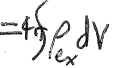 =4π∫ρ_ex dV